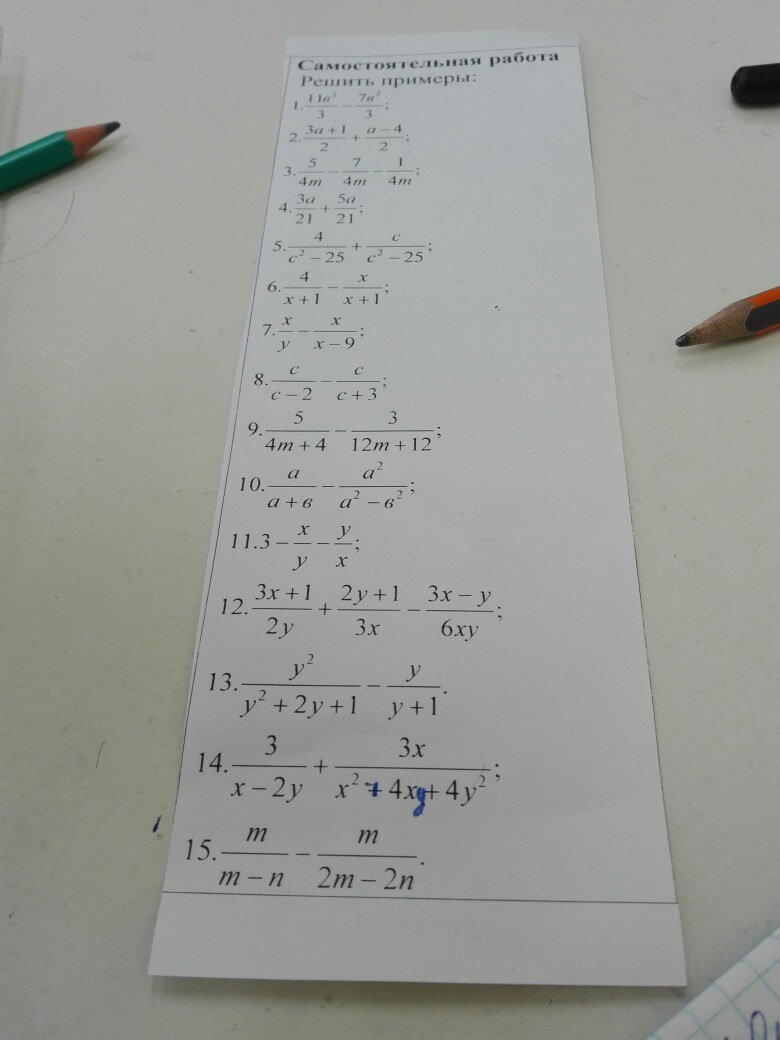 Самостоятельная работа
Решить примеры:
1. 11в²/3 − 7в²/3;
2. (3a+1)/2 + (a−4)/2;
3. 5/4m − 7/4m − 1/4m;
4. 3a/21 + 5a/21;
5. 4/(c²−25) + c/(c²−25);
6. 4/(x+1) − x/(x+1);
7. x/y − x/(x−9);
8. c/(c−2) − c/(c+3);
9. 5/(4m+4) − 3/(12m+12);
10. a/(a+в) − a²/(a²−в²);
11. 3 − x/y − y/x;
12. (3x+1)/2y + (2y+1)/3x − (3x−y)/6xy;
13. y²/(y²+2y+1) − y/(y+1).
14. 3/(x−2y) + 3x/(x²+4xy+4y²);
15. m/(m−n) − m/(2m−2n).